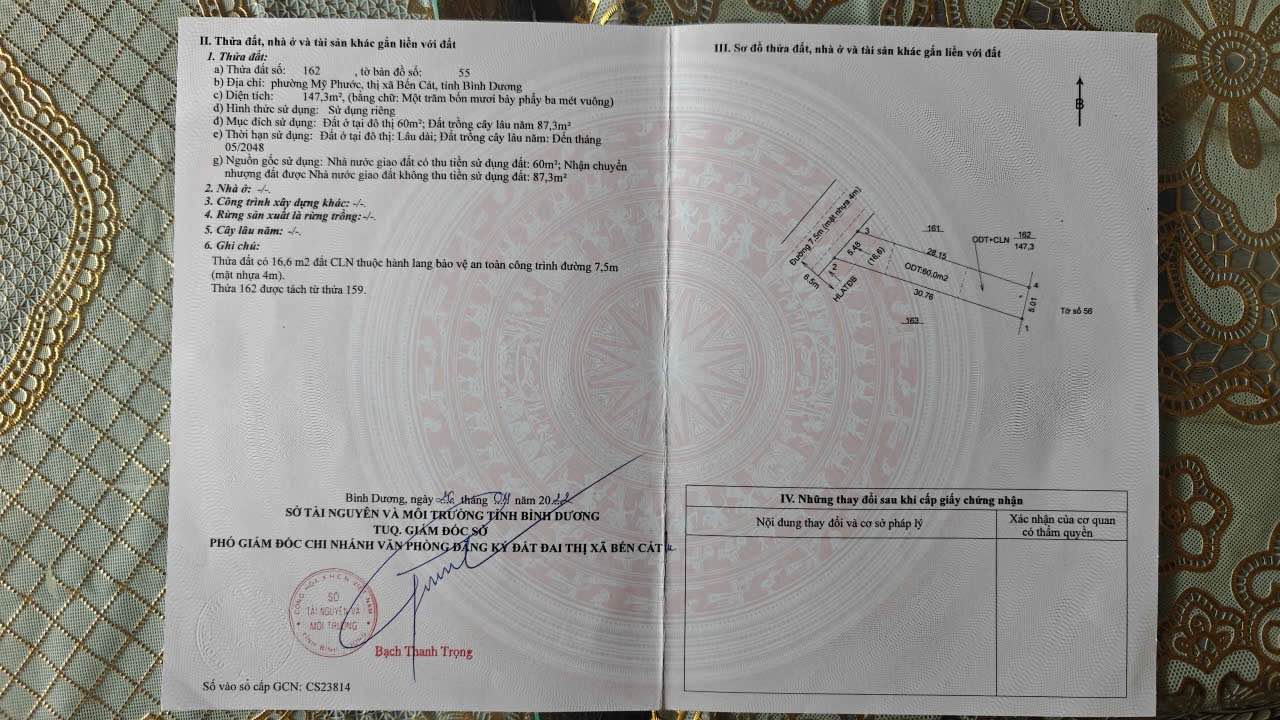 II. Thửa đất, nhà ở và tài sản khác gắn liền với đất
1. Thửa đất:
a) Thửa đất số: 162 , tờ bản đồ số: 55
b) Địa chỉ: phường Mỹ Phước, thị xã Bến Cát, tỉnh Bình Dương
c) Diện tích: 147,3m², (bằng chữ: Một trăm bốn mươi bảy phẩy ba mét vuông)
d) Hình thức sử dụng: Sử dụng riêng
đ) Mục đích sử dụng: Đất ở tại đô thị 60m²; Đất trồng cây lâu năm 87,3m²
e) Thời hạn sử dụng: Đất ở tại đô thị: Lâu dài; Đất trồng cây lâu năm: Đến tháng
05/2048
g) Nguồn gốc sử dụng: Nhà nước giao đất có thu tiền sử dụng đất: 60m²; Nhận chuyển
nhượng đất được Nhà nước giao đất không thu tiền sử dụng đất: 87,3m²
2. Nhà ở: -/-.
3. Công trình xây dựng khác: -/-.
4. Rừng sản xuất là rừng trồng:-/-.
5. Cây lâu năm: -/-.
6. Ghi chú:
Thửa đất có 16,6 m2 đất CLN thuộc hành lang bảo vệ an toàn công trình đường 7,5m
(mặt nhựa 4m).
Thửa 162 được tách từ thửa 159.
Bình Dương, ngày tháng năm 2022
SỞ TÀI NGUYÊN VÀ MÔI TRƯỜNG TỈNH BÌNH DƯƠNG
TUQ. GIÁM ĐỐC SỞ
PHÓ GIÁM ĐỐC CHI NHÁNH VĂN PHÒNG ĐĂNG KÝ ĐẤT ĐAI THỊ XÃ BẾN CÁT
CỘNG HÒA X.H.C.N VIỆT NAM
SỞ
TÀI NGUYÊN VÀ
MÔI TRƯỜNG
TỈNH BÌNH DƯƠNG
Bạch Thanh Trọng
Số vào sổ cấp GCN: CS23814
III. Sơ đồ thửa đất, nhà ở và tài sản khác gắn liền với đất
B
Đường 7,5m (mặt nhựa 4m)
161
ODT+CLN 162
147,3
3
5.48
(16,6)
28.15
2
6.5m
HLATĐB
ODT:60,0m2
30.76
4
5.01
1
163
Tờ số 56
IV. Những thay đổi sau khi cấp giấy chứng nhận
Nội dung thay đổi và cơ sở pháp lý
Xác nhận của cơ quan
có thẩm quyền